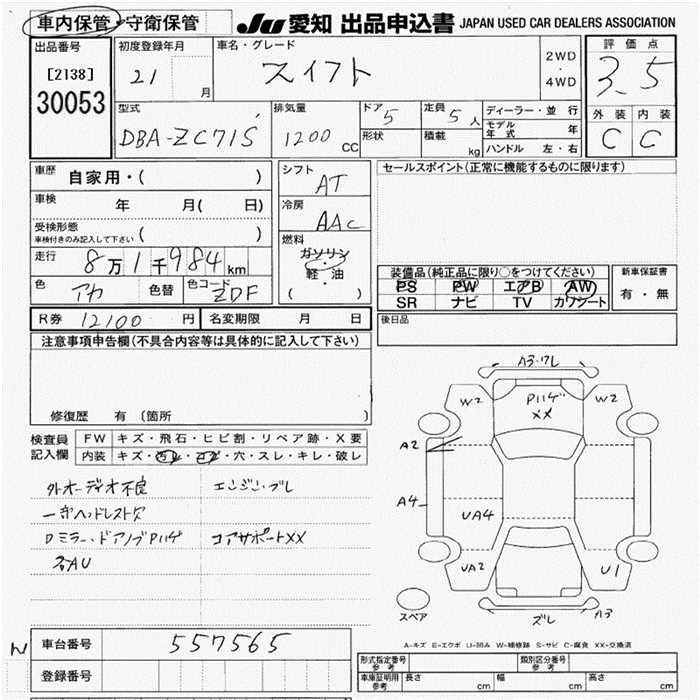 車内保管・守衛保管
JU 愛知 出品申込書 JAPAN USED CAR DEALERS ASSOCIATION
出品番号
[2138]
30053
初度登録年月
21 月
車名・グレード
スイフト
2WD
・
4WD
評価点
3.5
外装 内装
C C
型式
DBA-ZC71S
排気量
1200 CC
ドア
5
形状
定員
5 人
積載
kg
ディーラー・並行
モデル年式 年
ハンドル 左・右
車歴
自家用・( )
車検
年 月( 日)
受検形態
車検付きのみ記入して下さい ( )
走行
8万1千984 km
色
アカ
色替
色コード
ZDF
シフト
AT
冷房
AAC
燃料
ガソリン
・
軽・油
( )
セールスポイント(正常に機能するものに限ります)
装備品(純正品に限り○をつけてください)
PS PW エアB AW
SR ナビ TV カワシート
新車保証書
有・無
R券 12100 円
名変期限 月 日
後日品
注意事項申告欄(不具合内容等は具体的に記入して下さい)
修復歴 有(箇所 )
検査員記入欄
FW キズ・飛石・ヒビ割・リペア跡・X要
内装 キズ・汚レ・コゲ・穴・スレ・キレ・破レ
外オーディオ不良
エンジン・ブレ
一部ヘッドレスト欠
Dミラー・ドアノブPハゲ
コアサポートXX
各AU
A3・ワレ
W2
Pハゲ
XX
W2
A2
A4
UA4
UA2
U1
ズレ
A3
スペア
A-キズ E-エクボ U-凹み W-補修跡 S-サビ C-腐食 XX-交換済
車台番号 557565
登録番号
形式指定番号
参考
類別区分番号
参考
車庫証明用
参考
長さ cm
幅 cm
高さ cm